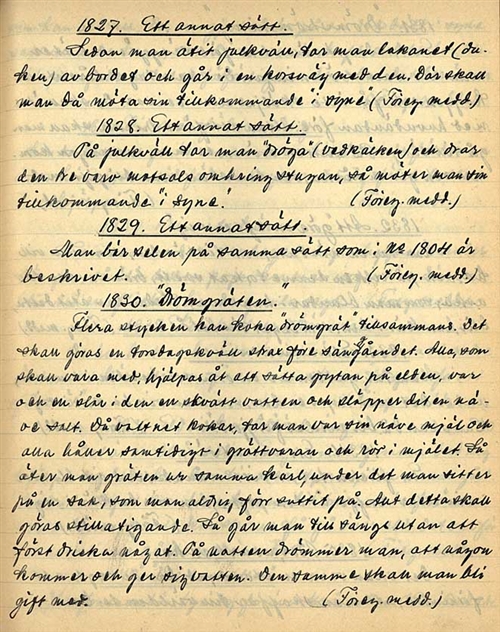 1827. Ett annat sätt.
Sedan man ätit julkväll, tar man lakanet (du-
ken) av bordet och går i en korsväg med den. Där skall
man då möta sin tillkommande "i syne" (Förey. medd.)
1828. Ett annat sätt.
På julkväll tar man "dröga" (vedkälken) och drar
den tre varv motsols omkring stugan, så möter man sin
tillkommande "i syne". (Förey. medd.)
1829. Ett annat sätt.
Man bär selen på samma sätt som i № 1804 är
beskrivet. (Förey. medd.)
1830. "Drömgröten."
Flera stycken kan koka "drömgröt" tillsammans. Det
skall göras en torsdagskväll strax före sänggåendet. Alla, som
skall vara med, hjälpas åt att sätta grytan på elden, var
och en slår i den en skvätt vatten och släpper dit en nä-
ve salt. Då vattnet kokar, tar man var sin näve mjöl och
alla håller samtidigt i grötvaran och rör i mjölet. Så
äter man gröten ur samma kärl, under det man sitter
på en sak, som man aldrig förr suttit på. Allt detta skall
göras stillatigande. Så går man till sängs utan att
först dricka något. På natten drömmer man, att någon
kommer och ger sig vatten. Den samme skall man bli
gift med. (Förey. medd.)